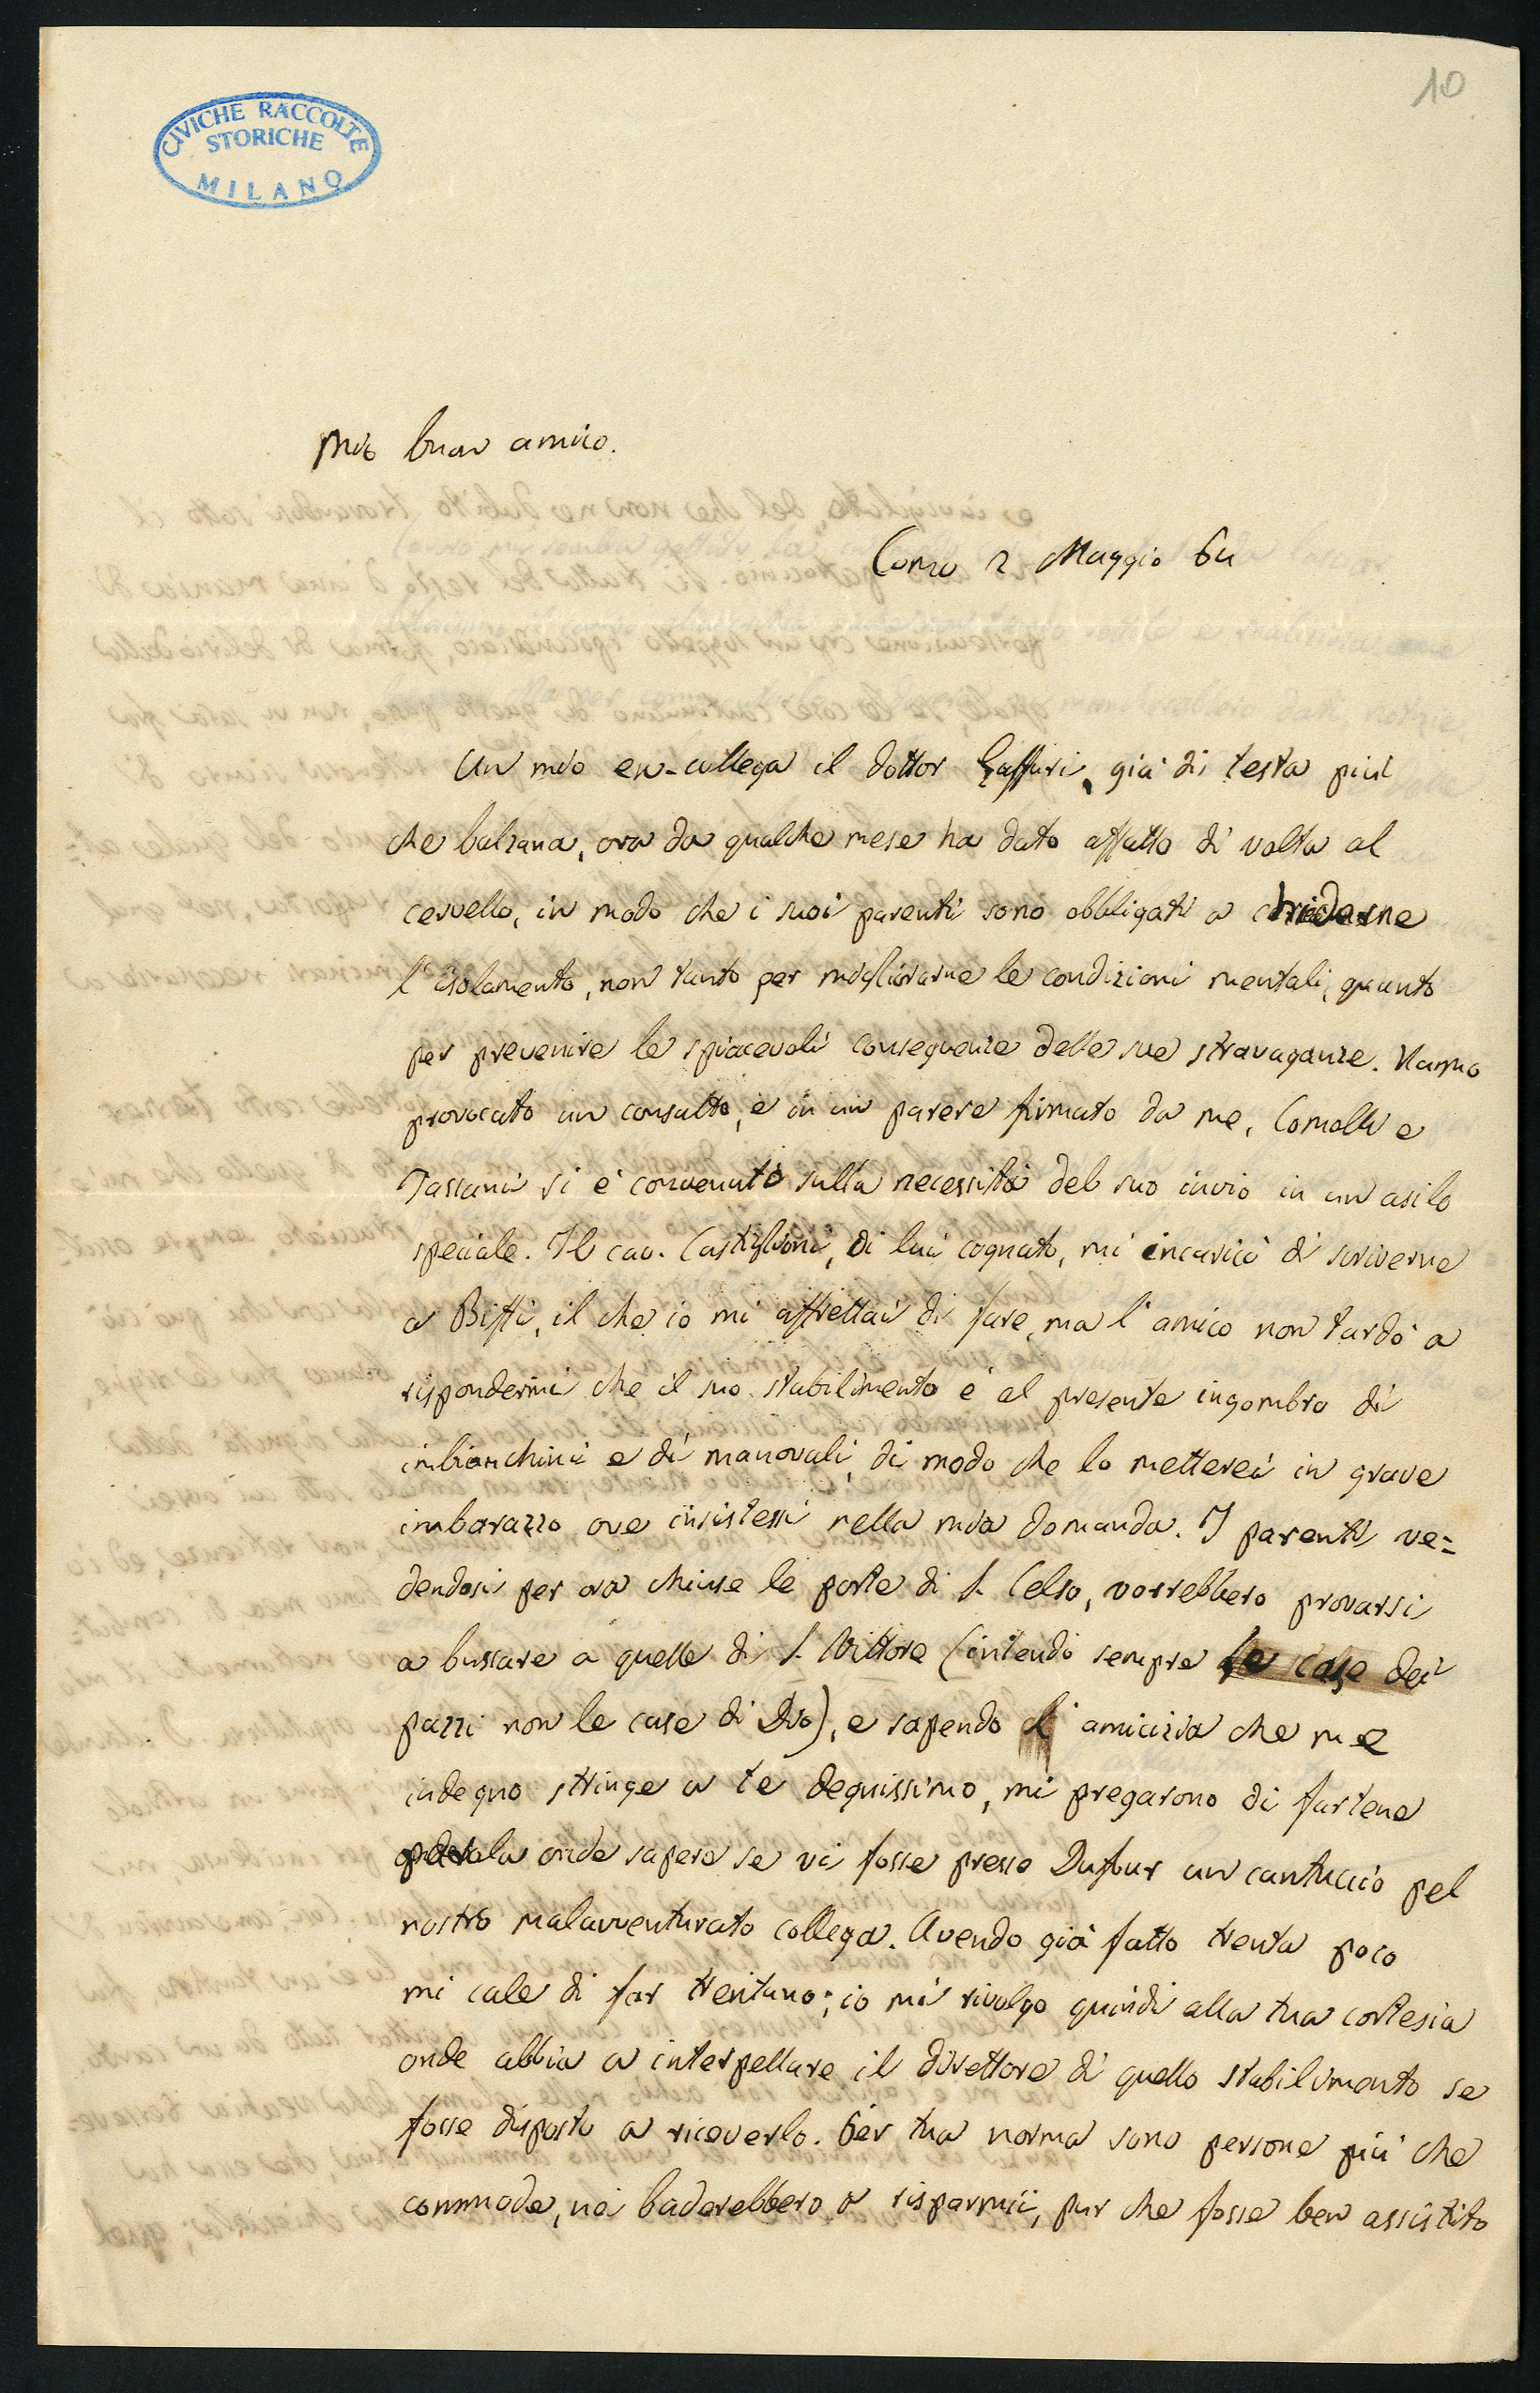 10
CIVICHE RACCOLTE
STORICHE
MILANO
Mio buon amico.
Como 2 Maggio 64
Un mio ex-collega il dottor Gaffuri, già di testa più
che balzana, ora da qualche mese ha dato affatto di volta al
cervello, in modo che i suoi parenti sono obbligati a chiederne
l'isolamento, non tanto per migliorarne le condizioni mentali, quanto
per prevenire le spiacevoli conseguenze delle sue stravaganze. Hanno
provocato un consulto, e in un parere firmato da me, Comolli e
Tassani si è convenuto sulla necessità del suo invio in un asilo
speciale. Il cav. Castiglioni, di lui cognato, mi incaricò di scriverne
a Biffi, il che io mi affrettai di fare, ma l'amico non tardò a
rispondermi che il suo stabilimento è al presente ingombro di
imbianchini e di manovali, di modo che lo metterei in grave
imbarazzo ove insistessi nella mia domanda. I parenti ve=
dendosi per ora chiuse le porte di S. Celso, vorrebbero provarsi
a bussare a quelle di S. Vittore (intendi sempre le case dei
pazzi non le case di Dio), e sapendo l'amicizia che me
indegno stringe a te degnissimo, mi pregarono di fartene
parola onde sapere se vi fosse presso Dufour un cantuccio pel
nostro malavventurato collega. Avendo già fatto trenta poco
mi cale di far trentuno; io mi rivolgo quindi alla tua cortesia
onde abbia a interpellare il direttore di quello stabilimento se
fosse disposto a riceverlo. Per tua norma sono persone più che
commode, nè baderebbero a risparmii, pur che fosse ben assistito